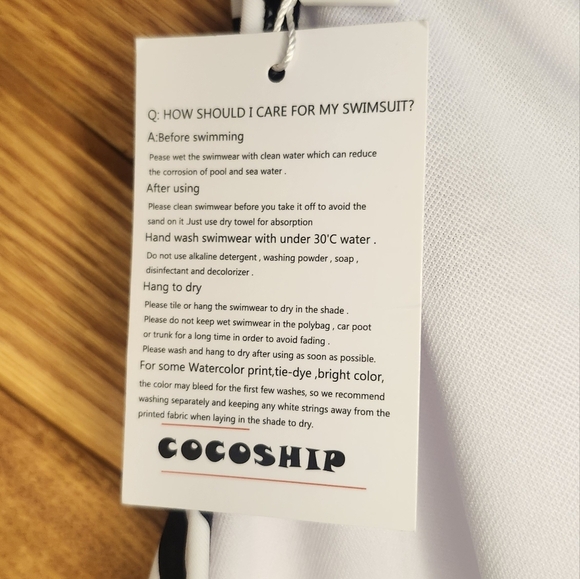 Q: HOW SHOULD I CARE FOR MY SWIMSUIT?
A:Before swimming
Pease wet the swimwear with clean water which can reduce
the corrosion of pool and sea water .
After using
Please clean swimwear before you take it off to avoid the
sand on it .Just use dry towel for absorption
Hand wash swimwear with under 30'C water .
Do not use alkaline detergent , washing powder , soap ,
disinfectant and decolorizer .
Hang to dry
Please tile or hang the swimwear to dry in the shade .
Please do not keep wet swimwear in the polybag , car poot
or trunk for a long time in order to avoid fading .
Please wash and hang to dry after using as soon as possible.
For some Watercolor print,tie-dye ,bright color,
the color may bleed for the first few washes, so we recommend
washing separately and keeping any white strings away from the
printed fabric when laying in the shade to dry.
COCOSHIP